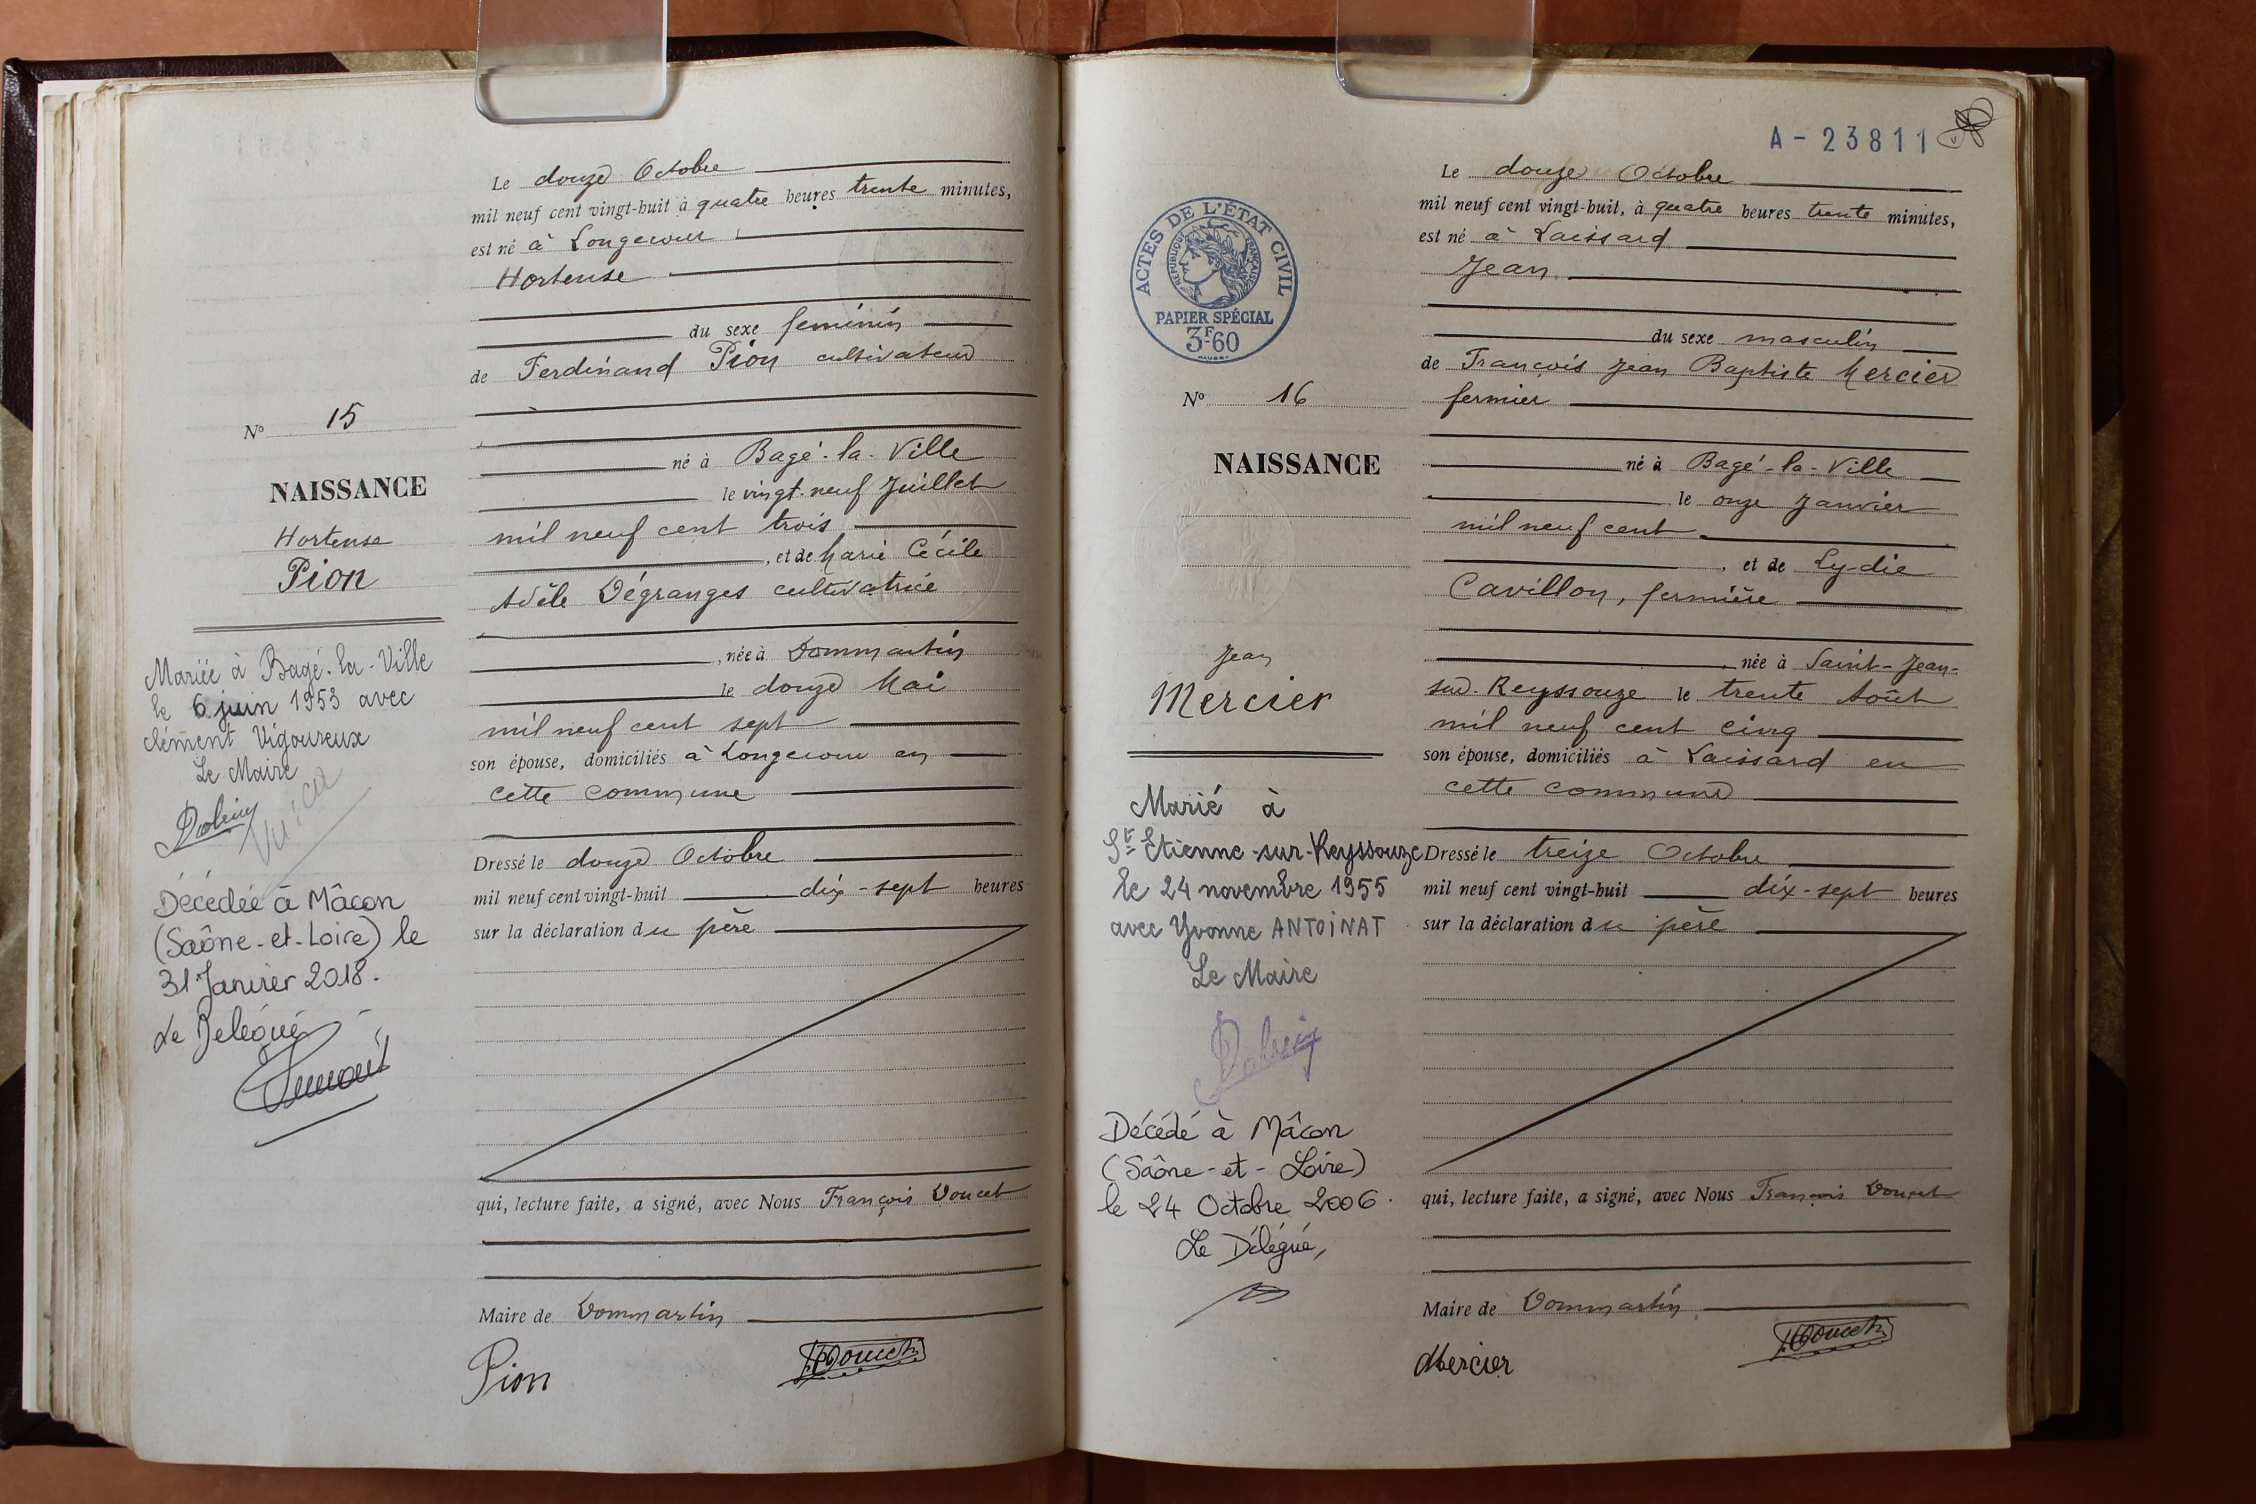 Le douze Octobre
mil neuf cent vingt-huit à quatre heures trente minutes,
est né à Longecour
Hortense
du sexe féminin
de Ferdinand Pion cultivateur
né à Bagé-la-Ville
le vingt-neuf Juillet
mil neuf cent trois
, et de Marie Cécile
Adèle Dégranges cultivatrice
, née à Dommartin
le douze Mai
mil neuf cent sept
son épouse, domiciliés à Longecour en
cette commune
Dressé le douze Octobre
mil neuf cent vingt-huit dix-sept heures
sur la déclaration du père
qui, lecture faite, a signé, avec Nous François Doucet
Maire de Dommartin
Pion
Doucet
Nº 15
NAISSANCE
Hortense
Pion
Mariée à Bagé-la-Ville
le 6 juin 1953 avec
Clément Vigoureux
Le Maire
Décédée à Mâcon
(Saône-et-Loire) le
31 Janvier 2018.
Le Délégué
A-23811
ACTES DE L'ÉTAT CIVIL
RÉPUBLIQUE FRANÇAISE
PAPIER SPÉCIAL
3F-60
Nº 16
NAISSANCE
Jean
Mercier
Marié à
St Etienne-sur-Reyssouze
le 24 novembre 1955
avec Yvonne ANTOINAT
Le Maire
Décédé à Mâcon
(Saône-et-Loire)
le 24 Octobre 2006.
Le Délégué,
Le douze Octobre
mil neuf cent vingt-huit, à quatre heures trente minutes,
est né à Laissard
Jean
du sexe masculin
de François Jean Baptiste Mercier
fermier
né à Bagé-la-Ville
le onze Janvier
mil neuf cent
, et de Lydie
Cavillon, fermière
, née à Saint-Jean-
sur-Reyssouze le trente Août
mil neuf cent cinq
son épouse, domiciliés à Laissard en
cette commune
Dressé le treize Octobre
mil neuf cent vingt-huit dix-sept heures
sur la déclaration du père
qui, lecture faite, a signé, avec Nous François Doucet
Maire de Dommartin
Mercier
Doucet